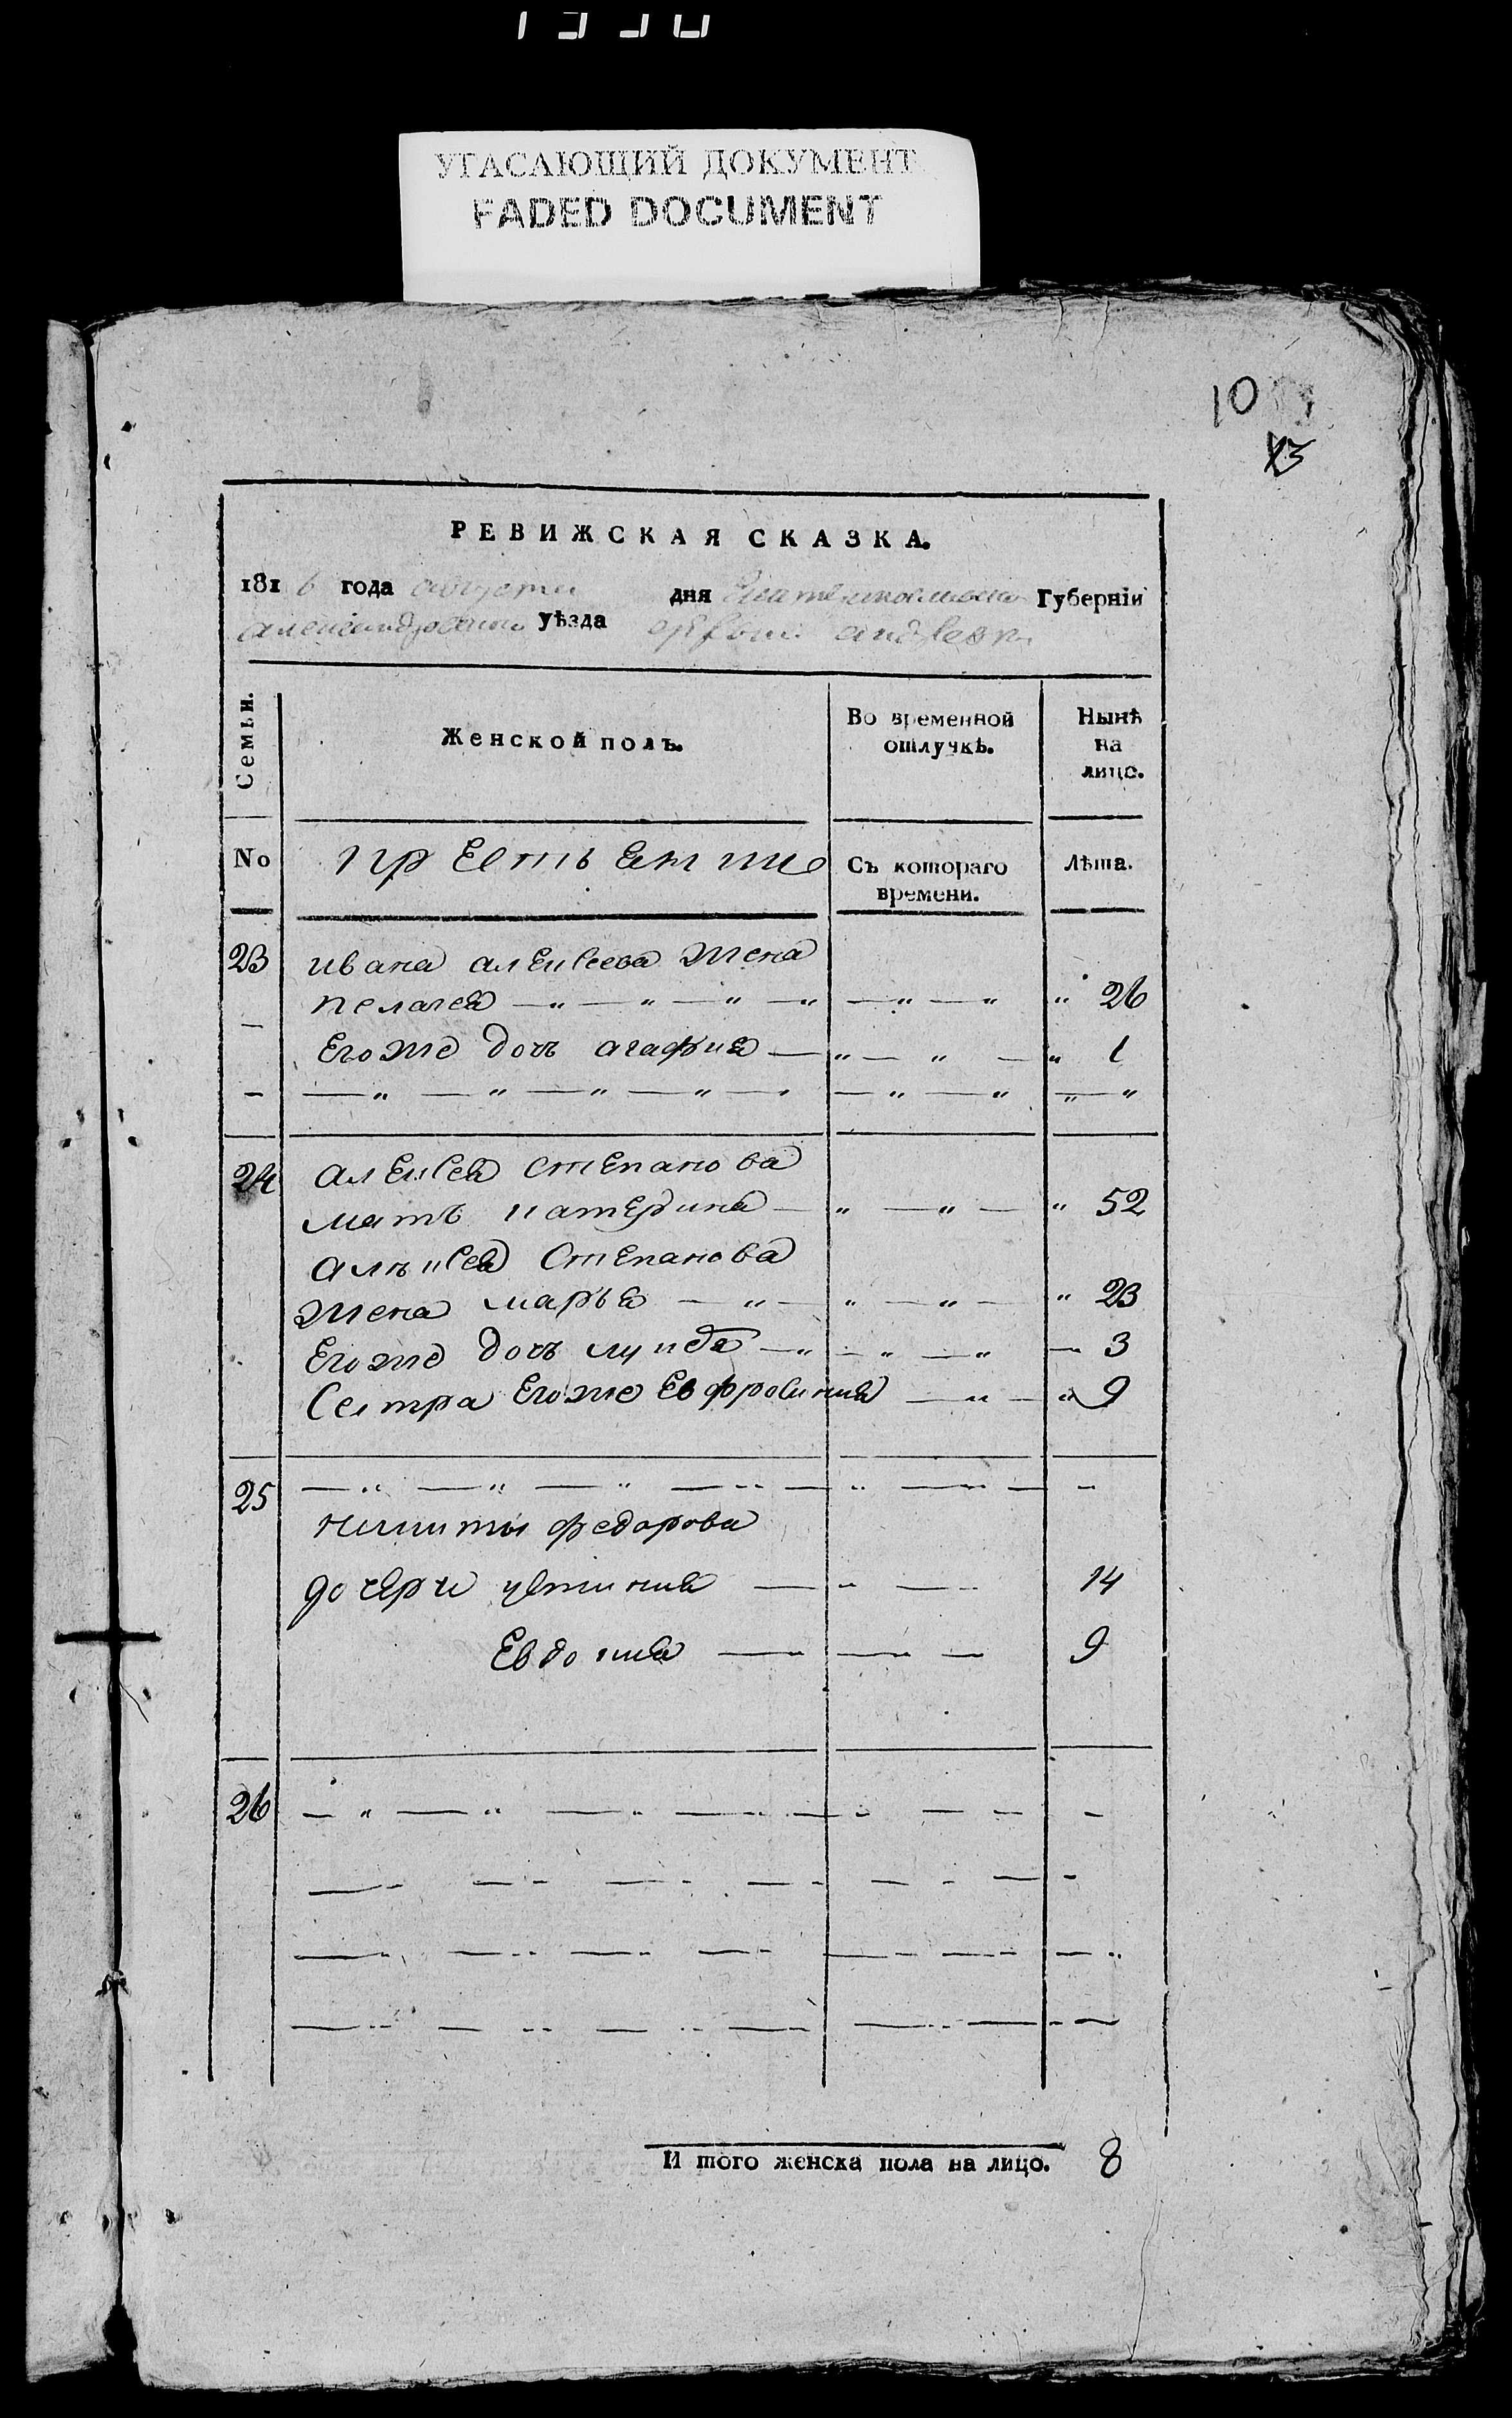 УГАСАЮЩИЙ ДОКУМЕНТ
FADED DOCUMENT
10
13
РЕВИЖСКАЯ СКАЗКА.
1816 года августа дня Екатеринославской Губерніи
александровского уѣзда
Семьи.
Женской полъ.
Во временной отлучкѣ.
Нынѣ на лицо.
No
крестьяне
Съ котораго времени.
лѣта.
23 ивана алексеева жена
пелагея — " — " — " — " — " — " " 26
Егоже дочь агафия — " — " — " 1
— " — " — " — " — " — " — " — "
24 алексея степанова
мать катерина — " — " — " 52
алексея степанова
жена марья — " — " — " — " 23
Егоже дочь лукея — " — " — " — 3
Сестра Егоже Евфросиния — " — " 9
25 — " — " — " — " — " — " — "
никиты федорова
дочери устиния — " — 14
Евдокия — — — 9
26 — " — " — " — " — " — — —
И того женска пола на лицо. 8